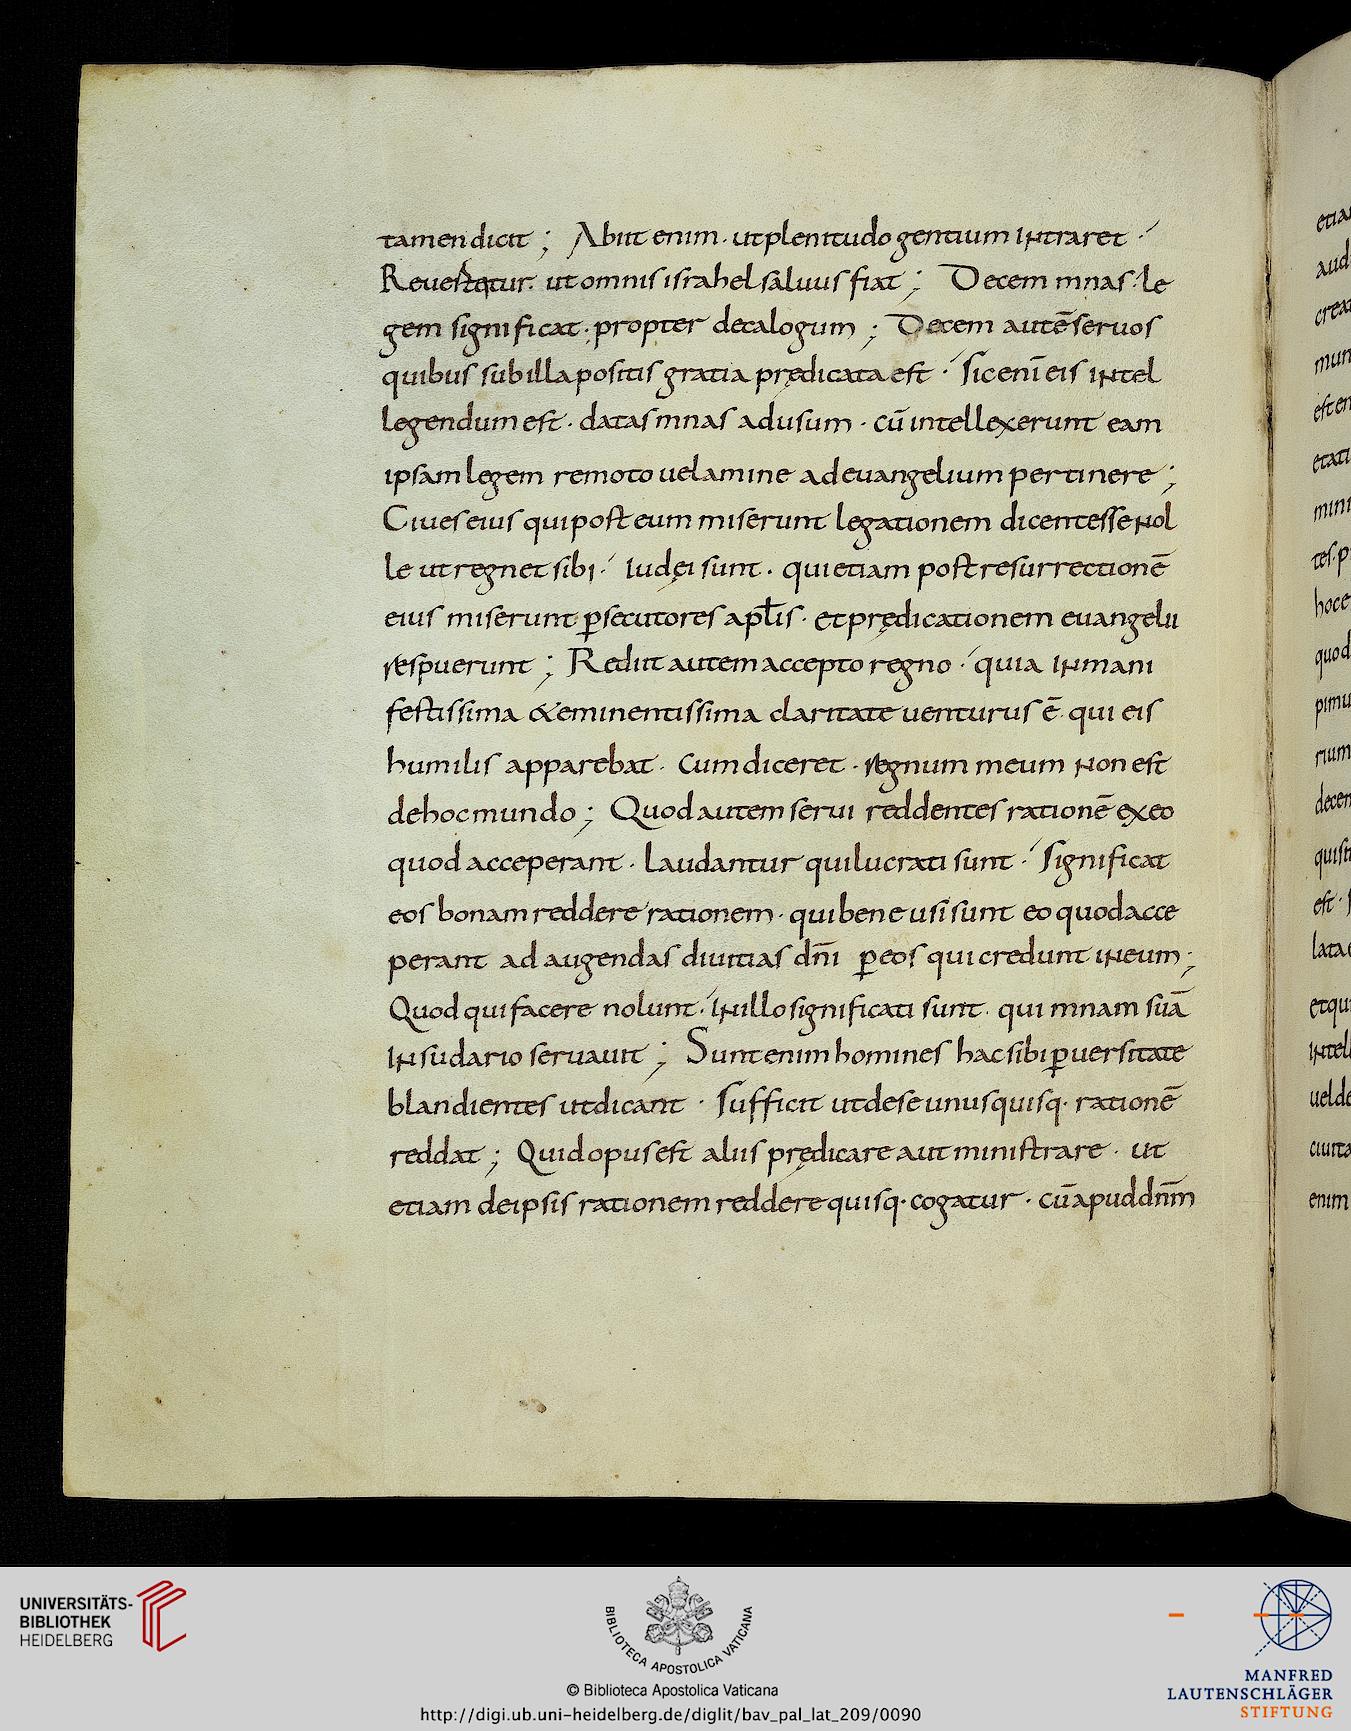 tamen dicit ; Abiit enim · ut plenitudo gentium intraret ·
Revertetur · ut omnis israhel saluus fiat ; Decem mnas · le
gem significat · propter decalogum ; Decem autē seruos
quibus sub illa positis gratia prędicata est · Sic enī eis intel
legendum est · datas mnas ad usum · cū intellexerunt eam
ipsam legem remoto uelamine ad euangelium pertinere ;
Ciues eius qui post eum miserunt legationem dicentes se nol
le ut regnet sibi · iudęi sunt · qui etiam post resurrectionē
eius miserunt ꝑsecutores apłis · et prędicationem euangelii
respuerunt ; Rediit autem accepto regno · quia in mani
festissima & eminentissima claritate uenturus ē · qui eis
humilis apparebat · cum diceret · regnum meum non est
de hoc mundo ; Quod autem serui reddentes rationē ex eo
quod acceperant · laudantur qui lucrati sunt · Significat
eos bonam reddere rationem · qui bene usi sunt eo quod acce
perant ad augendas diuitias dn̄i ꝑ eos qui credunt in eum ;
Quod qui facere nolunt · in illo significati sunt · qui mnam suā
in sudario seruauit ; Sunt enim homines hac sibi ꝑuersitate
blandientes ut dicant · Sufficit ut de se unusquisq· rationē
reddat ; Quid opus est aliis prędicare aut ministrare · ut
etiam de ipsis rationem reddere quisq· cogatur · cū apud dn̄m
UNIVERSITÄTS-
BIBLIOTHEK
HEIDELBERG
BIBLIOTECA APOSTOLICA VATICANA
© Biblioteca Apostolica Vaticana
http://digi.ub.uni-heidelberg.de/diglit/bav_pal_lat_209/0090
MANFRED
LAUTENSCHLÄGER
STIFTUNG